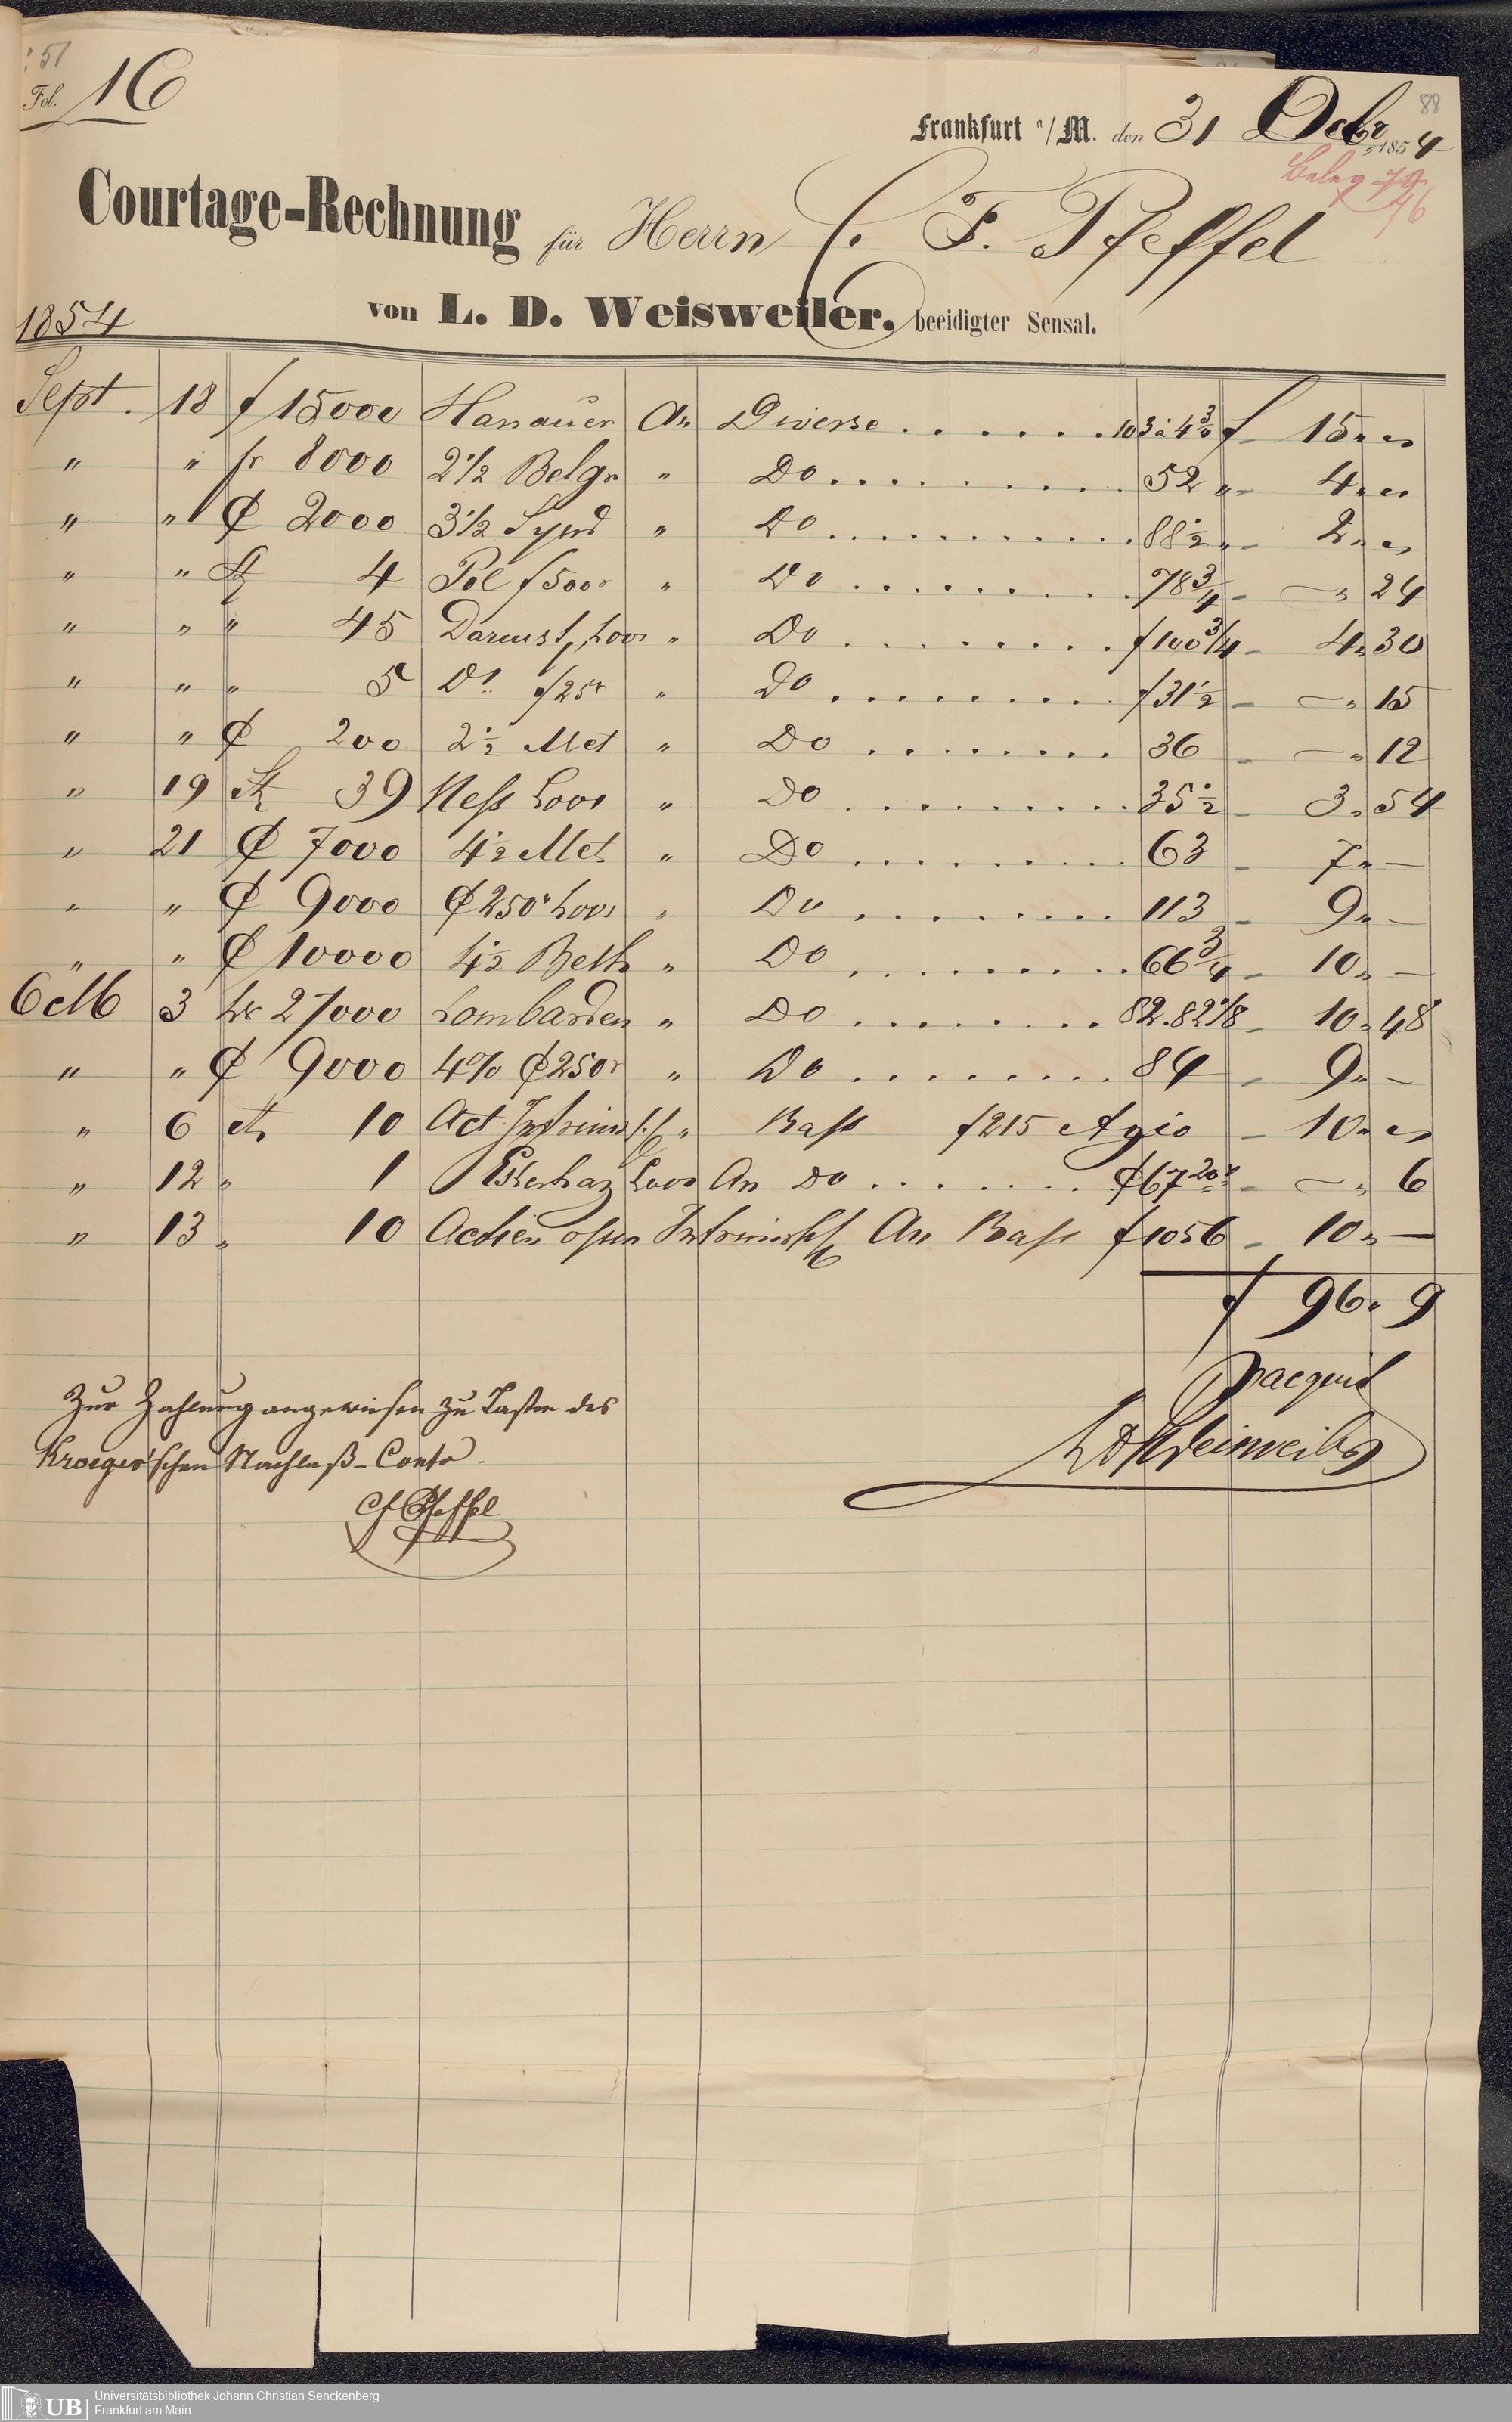 : 51
Fol. 16
88
Frankfurt a/M. den 31 Octbr 1854
Beleg 79
46
Courtage-Rechnung für Herrn C. F. Pfeffel
von L. D. Weisweiler, beeidigter Sensal.
1854
Sept. 18 f 15000 Hanauer An Diverse . . . . . . 103 à 4 3/4 f 15 " "
" " fr 8000 2 1/2 Belgr " Do . . . . . . . . . 52 " - 4 " "
" " ₵ 2000 3 1/2 Synd " Do . . . . . . . . . . . 88 1/2 " - 2 " "
" " St 4 Pol f 500r " Do . . . . . . . . . 78 3/4 - — " 24
" " " 45 Darmst. Loos " Do . . . . . . . . . f 100 3/4 - 4 " 30
" " " 5 Do f 25r " Do . . . . . . . . . f 31 1/2 - — " 15
" " ₵ 200 2 1/2 Met " Do . . . . . . . . 36 - — " 12
" 19 St 39 Hess Loos " Do . . . . . . . . . 35 1/2 - 3 " 54
" 21 ₵ 7000 4 1/2 Met " Do . . . . . . . . . 63 - 7 " —
" " ₵ 9000 ₵ 250r Loos " Do . . . . . . . . 113 - 9 " —
" " ₵ 10000 4 1/2 Beth " Do . . . . . . . . . 66 3/4 - 10 " —
Octb 3 Lr 27000 Lombarden " Do . . . . . . . . 82.82 1/8 - 10 " 48
" " ₵ 9000 4% ₵ 250r " Do . . . . . . . . 84 - 9 " —
" 6 St 10 Act " Bass f 215 Agio - 10 " "
" 12 " 1 Esterhaz Loos An Do . . . . . . . ₵ 67 20r - — " 6
" 13 " 10 Actien An Bass f 1056 - 10 " —
f 96 " 9
pacquit
L D Weisweiler
Zur Zahlung angewiesen zu Lasten des
Kroeger'schen Nachlaß-Conto.
CF Pfeffel
UB
Universitätsbibliothek Johann Christian Senckenberg
Frankfurt am Main